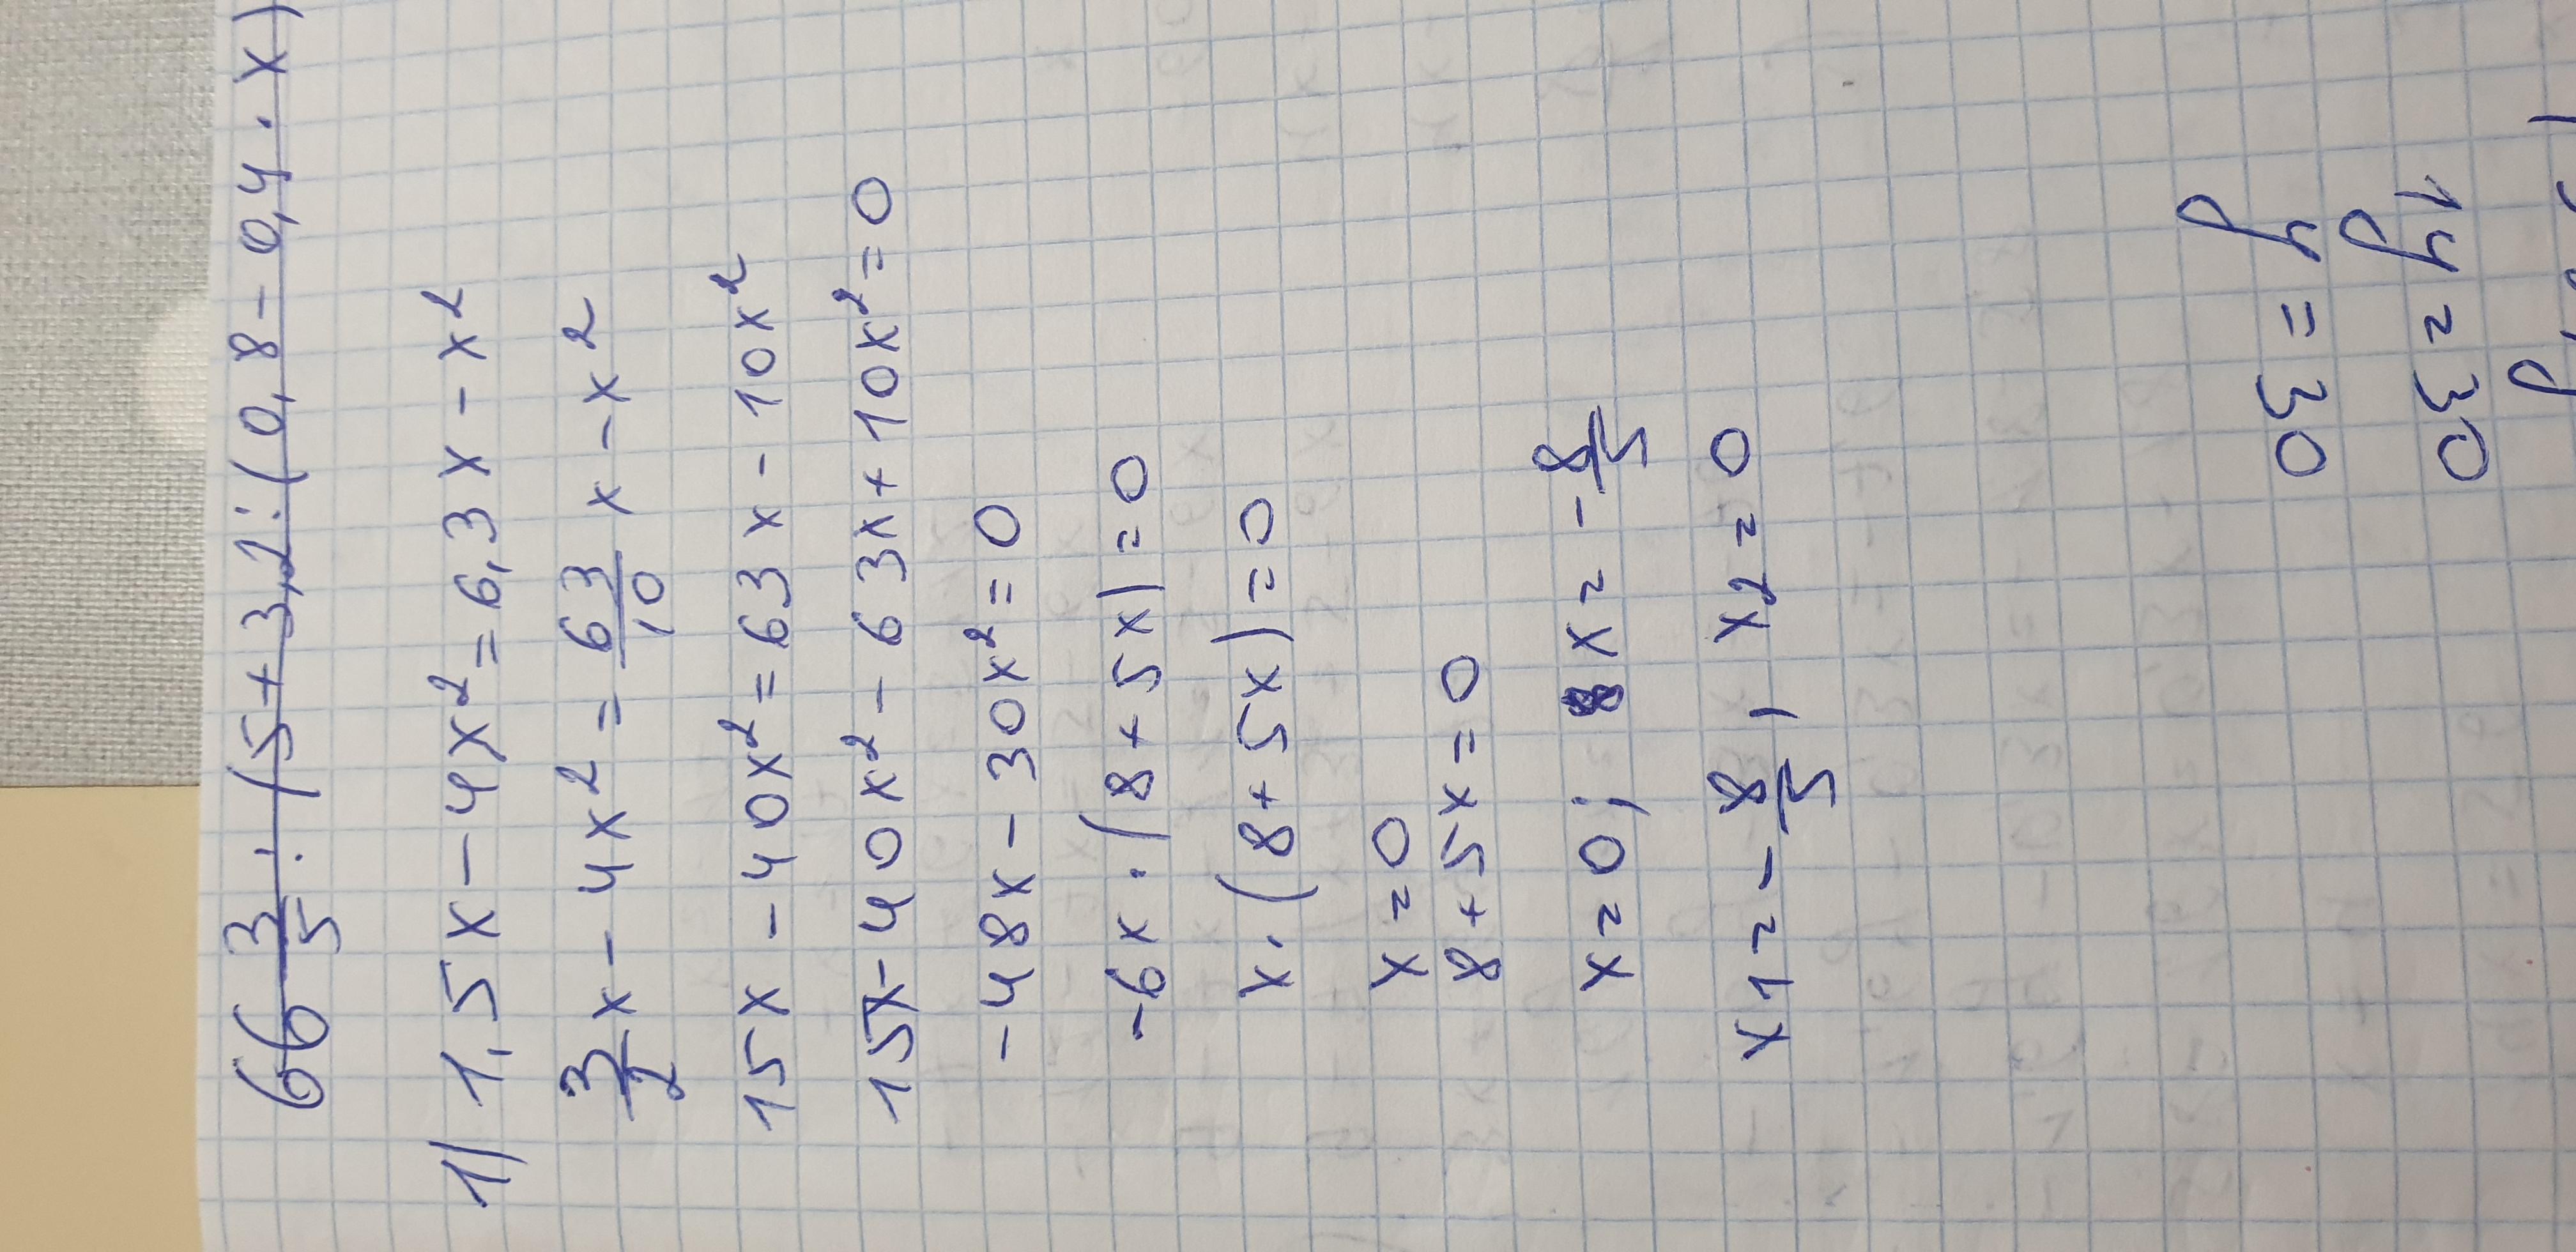 66 3/5 : (5 + 3,2 : (0,8 - 0,4 · x)
1) 1,5x - 4x² = 6,3x - x²
3/2 x - 4x² = 63/10 x - x²
15x - 40x² = 63x - 10x²
15x - 40x² - 63x + 10x² = 0
-48x - 30x² = 0
-6x · (8 + 5x) = 0
x · (8 + 5x) = 0
x = 0
8 + 5x = 0
x = 0; x = -8/5
x1 = -8/5, x2 = 0